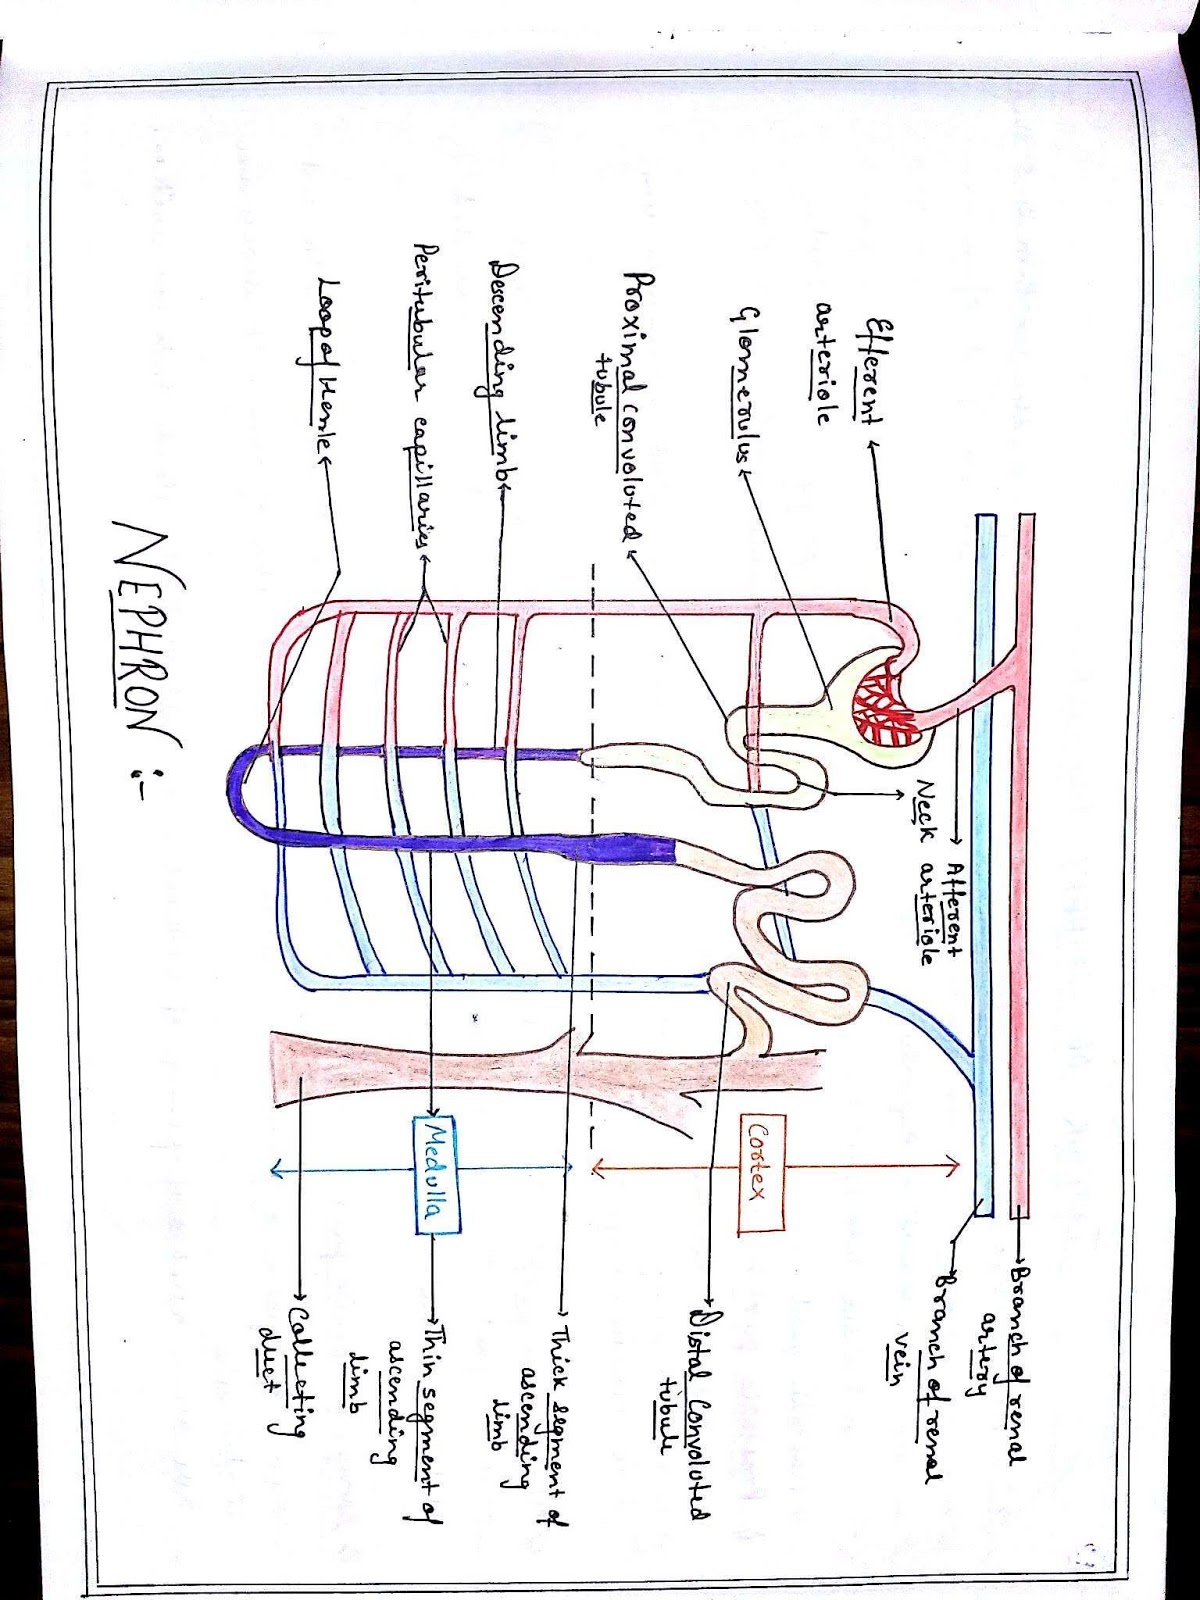 Efferent
arteriole
Glomerulus
Proximal convoluted
tubule
Descending limb
Peritubular capillaries
Loop of Henle
Neck
Afferent
arteriole
Cortex
Medulla
Branch of renal
artery
Branch of renal
vein
Distal Convoluted
tubule
Thick segment of
ascending
limb
Thin segment of
ascending
limb
Collecting
duct
NEPHRON :-